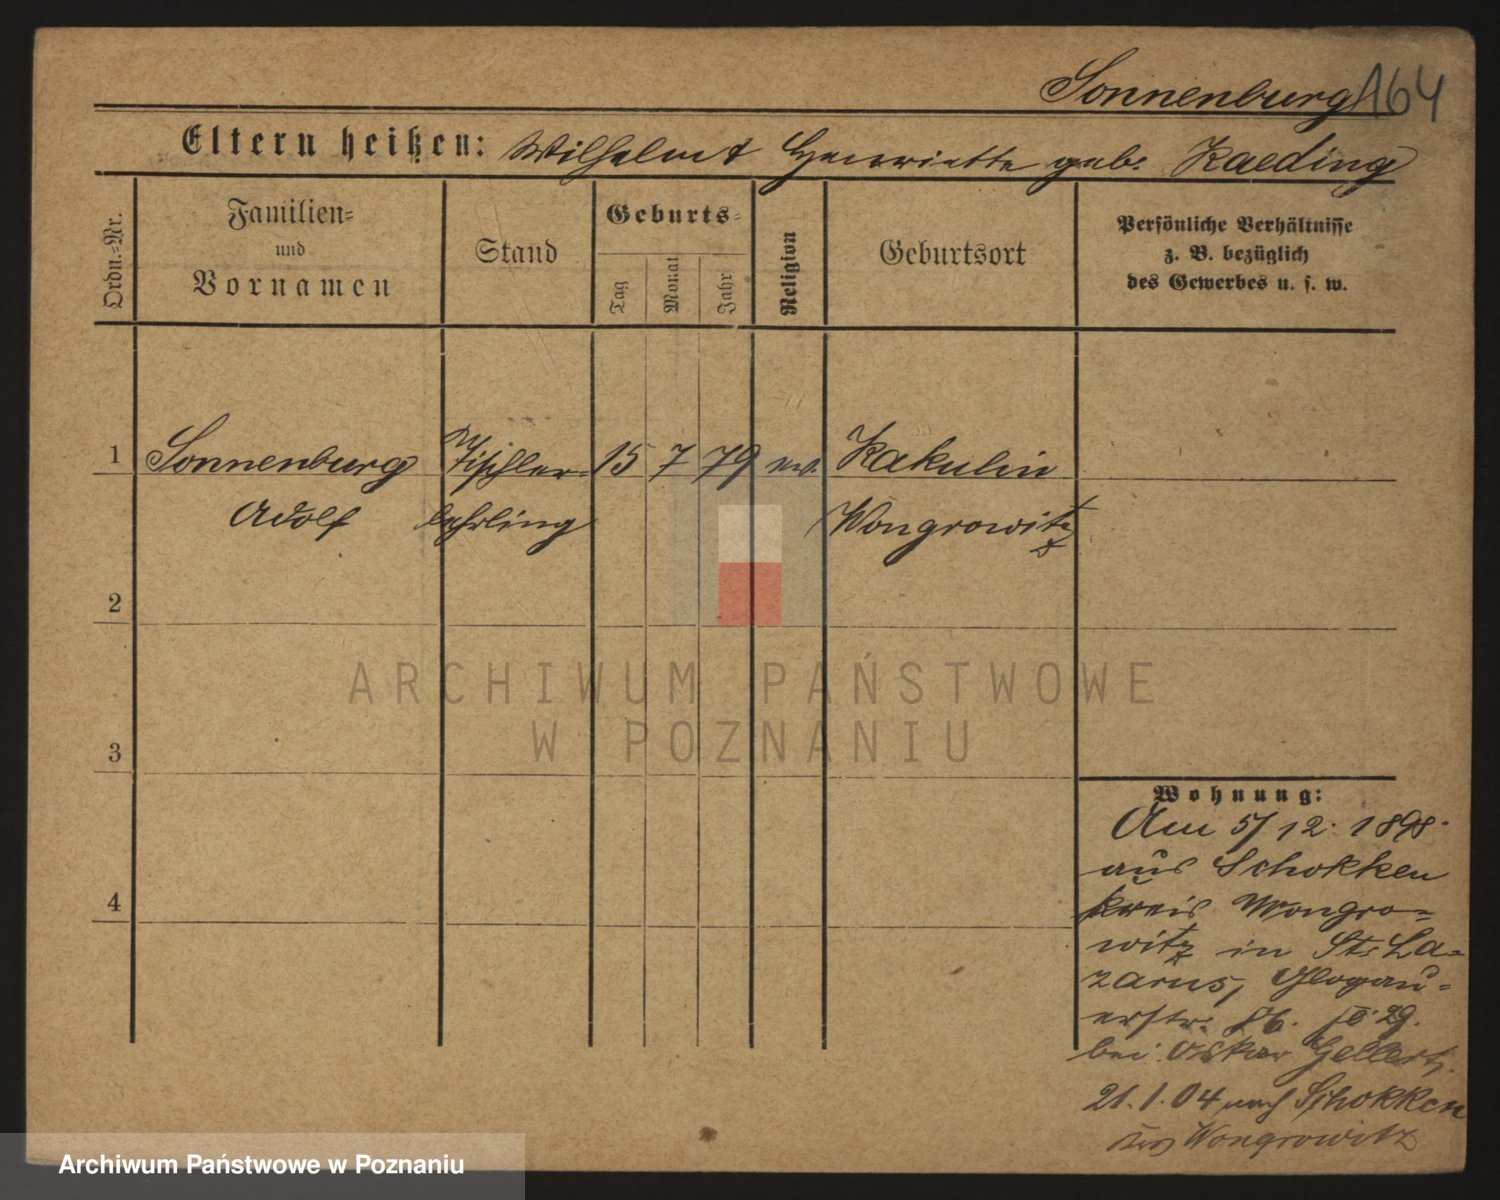 Sonnenburg 164
Eltern heißen: Wilhelm u Henriette geb. Kaeding
Ordn.=Nr.
Familien=
und
Vornamen
Stand
Geburts=
Tag
Monat
Jahr
Religion
Geburtsort
Persönliche Verhältnisse
z. B. bezüglich
des Gewerbes u. s. w.
1 Sonnenburg Tischler= 15 7 79 ev. Kakulin
Adolf lehrling Wongrowitz
2
3
4
ARCHIWUM PAŃSTWOWE
W POZNANIU
Wohnung:
Am 5/12. 1898.
aus Schokken
Kreis Wongro=
witz in St. La=
zarus, Glogau=
erstr.
bei Oskar
21.1.04 nach Schokken
Wongrowitz
Archiwum Państwowe w Poznaniu